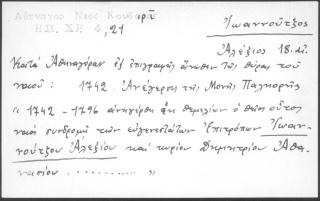 Ἀθηναγόρα Νέος Κουβαρᾶ
ΗΠ. ΧΡ. 4, 21
Ἰωαννούτζος
Ἀλέξιος 18. αἰ.
Κατὰ Ἀθηναγόραν ἐξ ἐπιγραφῆς ἄνωθεν τῆς θύρας τοῦ
ναοῦ: 1742. Ἀνέγερσις τῆς Μονῆς Παλιορῆς
« 1742 - 1796 ἀνηγέρθη ἐκ θεμελίων ὁ θεῖος οὗτος
ναὸς συνδρομῇ τῶν εὐγενεστάτων Ἐπιτρόπων Ἰωαν-
νούτζου Ἀλεξίου καὶ κυρίου Δημητρίου Ἀθα-
νασίου ............ »